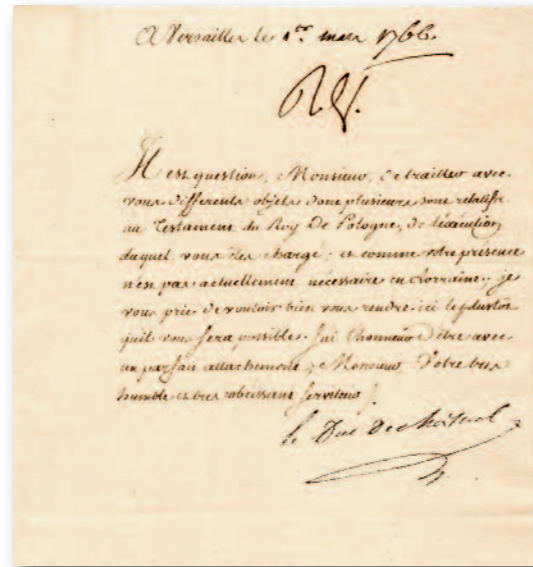 A Versailles le 1er. mars 1766.
Il est question, Monsieur, de travailler avec
vous differents objets dont plusieurs sont relatifs
au Testament du Roy De Pologne, de l'éxécution
duquel vous êtes chargé; et comme votre présence
n'est pas actuellement nécessaire en Lorraine, je
vous prie de vouloir bien vous rendre ici le plustôt
quil vous sera possible. J'ai l'honneur d'être avec
un parfait attachement, Monsieur, Votre tres
humble et tres obeissant serviteur
le Duc De Choiseul